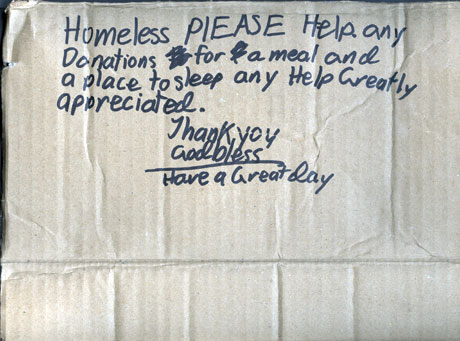 Homeless PlEASE Help any
Donations for a meal and
a place to sleep any Help Greatly
appreciated.
Thank you
God bless
Have a Great day